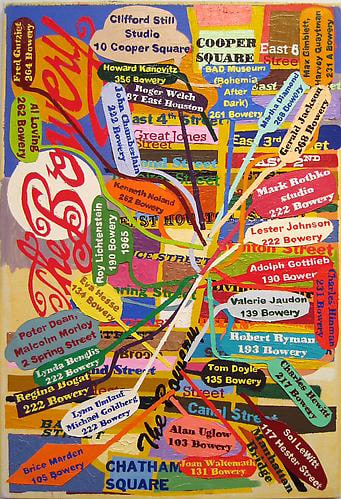 Fred Gutzeit
264 Bowery
Clifford Still
Studio
10 Cooper Square
COOPER
SQUARE
East 6
Street
Max Gimblett,
Harvey Quaytman
231 A Bowery
Howard Kanovitz
356 Bowery
BAD Museum
(Bohemia
After
Dark)
261 Bowery
Martha Diamond
Gerald Jackson
Al Loving
262 Bowery
John Chamberlain
Roger Welch
97 East Houston
East 4th Street
Great Jones
Street
East 3rd
Street
The Bowery
Kenneth Noland
262 Bowery
Mark Rothko
studio
222 Bowery
Roy Lichtenstein
190 Bowery
1965
Lester Johnson
222 Bowery
Adolph Gottlieb
190 Bower
Eva Hesse
134 Bowery
Charles Hinman
231 Bowery
Valerie Jaudon
139 Bowery
Peter Dean,
Malcolm Morley
2 Spring Street
Robert Ryman
193 Bowery
Lynda Benglis
222 Bowery
Regina Bogat
222 Bowery
The Bowery
Tom Doyle
135 Bowery
Charles Hewitt
217 Bowery
Lynn Umlauf
Michael Goldberg
222 Bowery
Canal Street
Alan Uglow
103 Bowery
Sol LeWitt
117 Hester Street
Manhattan
Bridge
Brice Marden
105 Bowery
CHATHAM
SQUARE
Joan Waltemath
131 Bowery